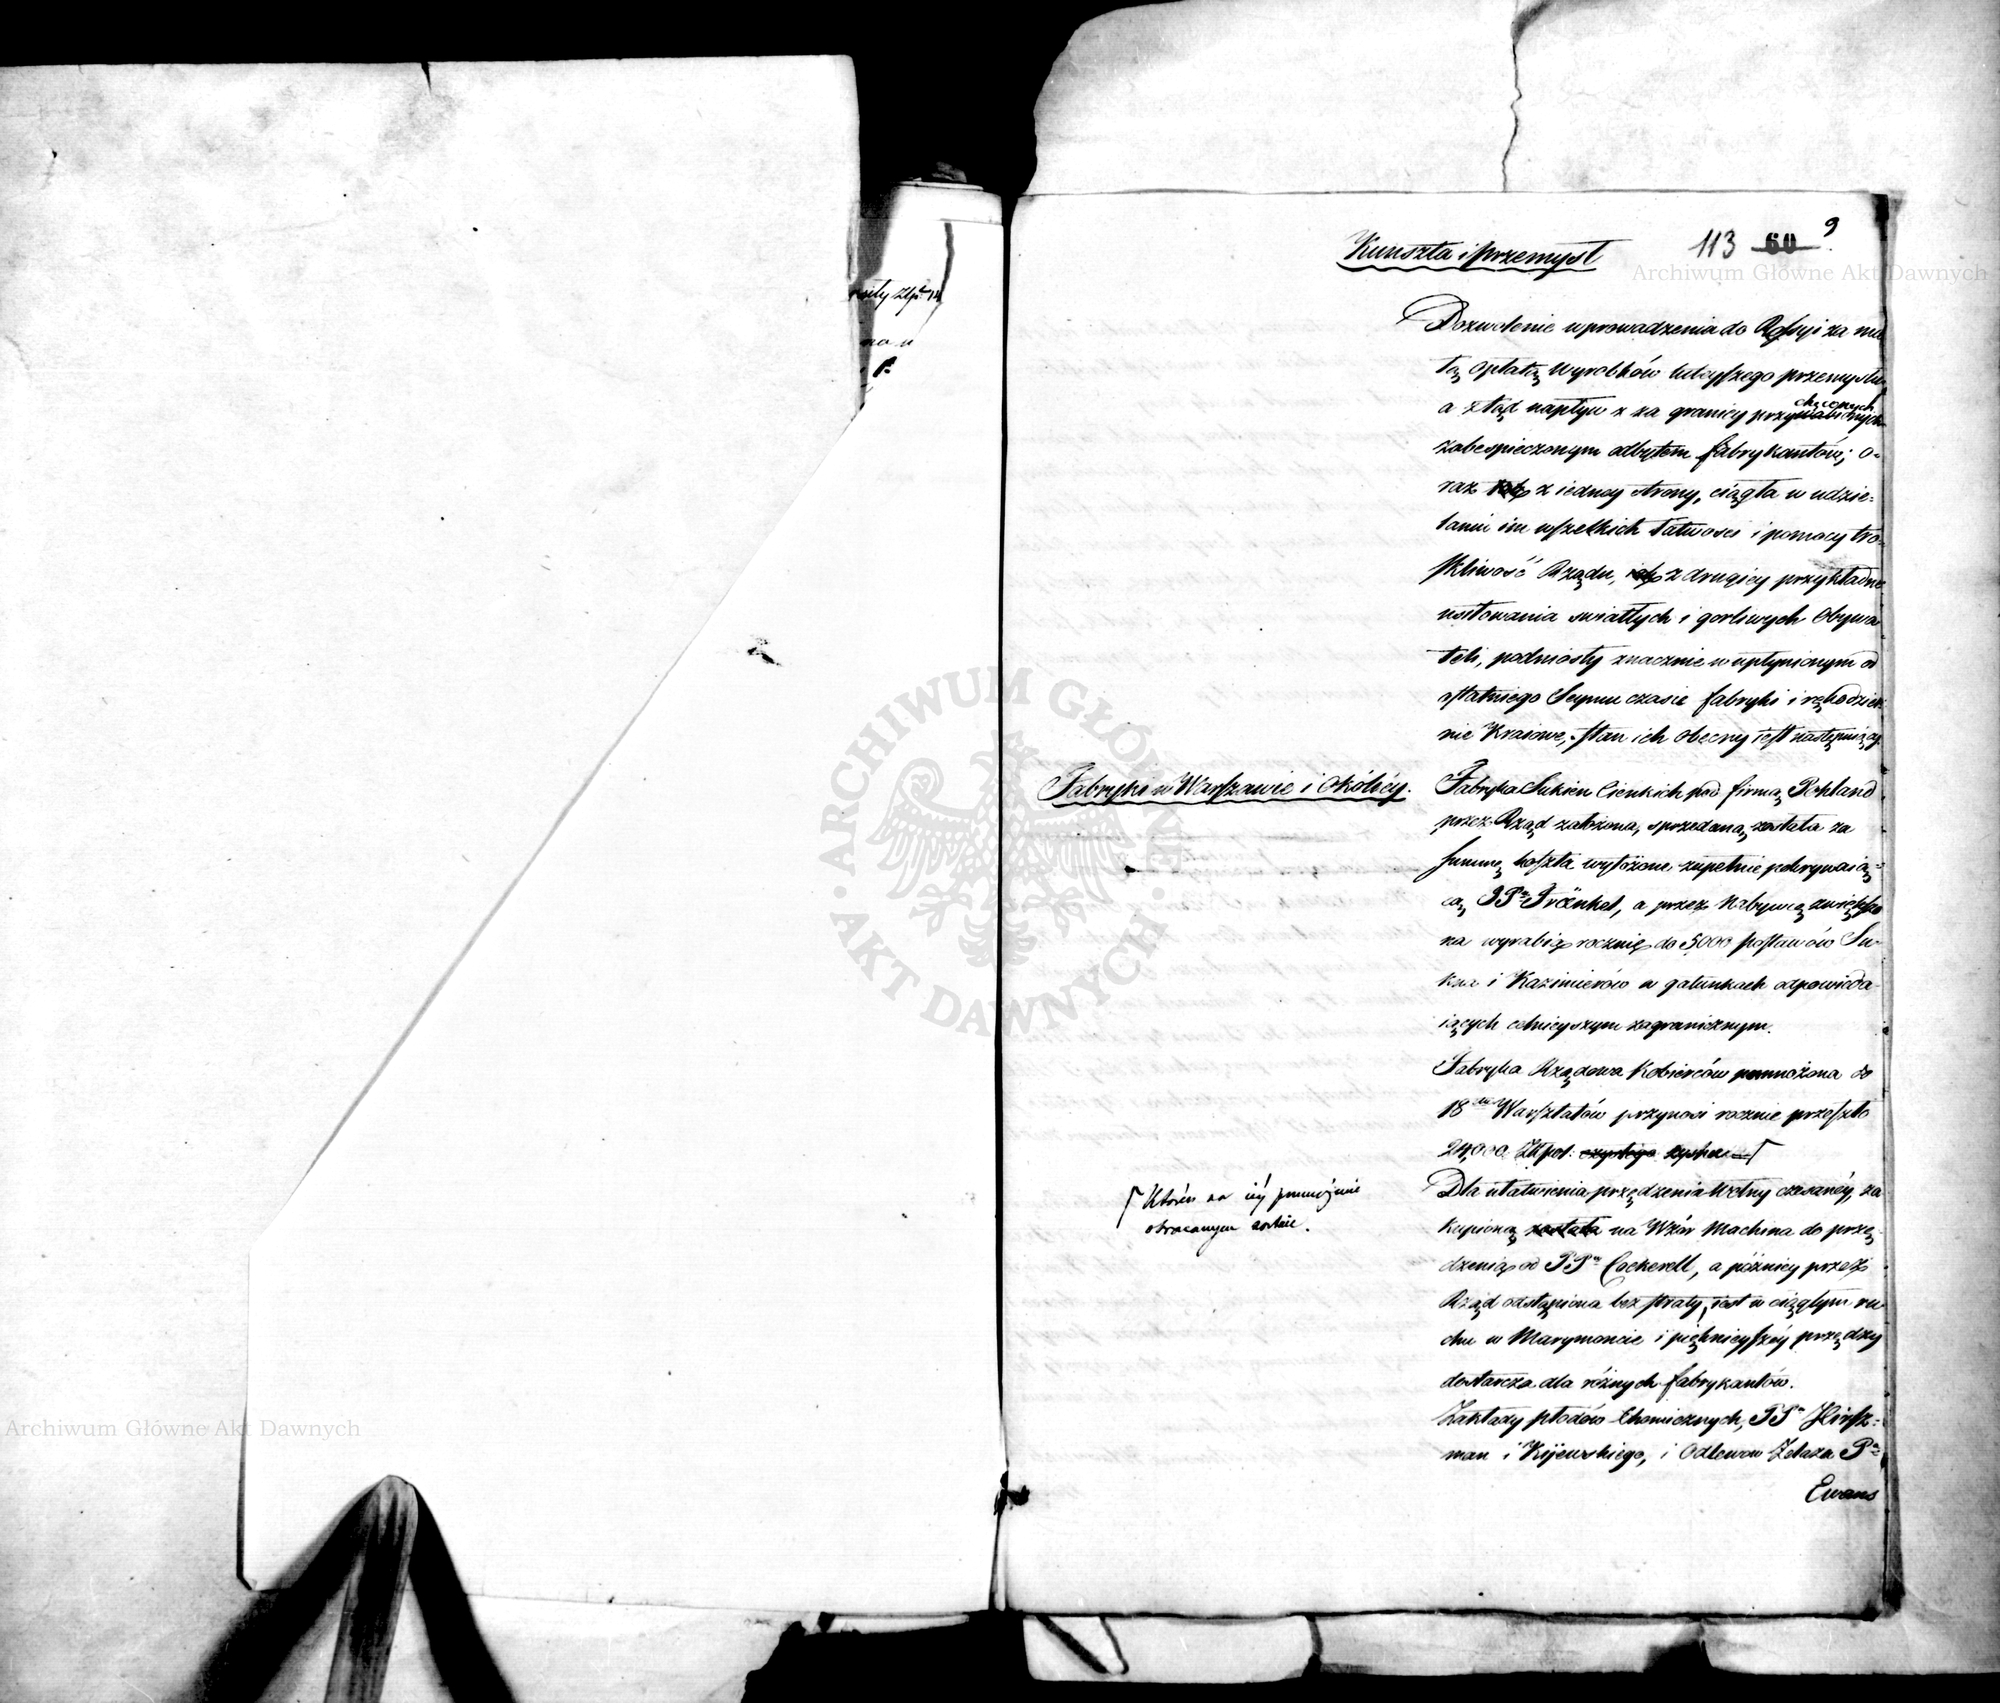 Kunszta i przemysł
113 60 9
Dozwolenie wprowadzenia do Rossyi za ma
łą opłatą wyrobków tuteyszego przemysłu,
a ztąd napływ z za granicy przywabionych
chęconych
zabespieczonym odbytem fabrykantów; o-
raz z iedney strony, ciągła w udzie=
laniu im wszelkich łatwości i pomocy tro-
skliwość Rządu, z drugiey przykładne
usiłowania swiatłych i gorliwych Obywa
teli, podniosły znacznie w upłynionym od
statniego Seymu czasie fabryki i rękodziel
nie Kraiowe, stan ich obecny iest następuiący.
Fabryki w Warszawie i okólicy.
Fabryka Sukien Cienkich pod firmą Pohland
przez Rząd założona, sprzedaną została za
summę koszta wyłożone zupełnie pokrywaią=
cą PPu Fränkel, a przez Nabywcę zwiększo
na wyrabia rocznie do 5000 postawów Su-
kna i Kazimierów w gatunkach odpowieda-
iących celnieyszym zagranicznym.
Fabryka Rządowa Kobierców pomnożona do
18stu Warsztatów przynosi rocznie przeszło
24,000 Złpol: czystego zysku
Które na iéy pomnożenie
obracanym
Dla ułatwienia przędzenia Wełny czesanéy, za
kupioną została na Wzór Machina do przę-
dzenia od PPu Cockerell, a późniey przez
Rząd odstąpiona bez straty, iest w ciągłym ru
chu w Marymoncie i piękniejszéy przędzy
dostarcza dla różnych fabrykantów.
Zakłady płodów Chemicznych, PPu Hirsz=
man i Kijewskiego, i Odlewow Żelaza Pa
Ewans
Archiwum Główne Akt Dawnych
ARCHIWUM GŁÓWNE
AKT DAWNYCH
Archiwum Główne Akt Dawnych